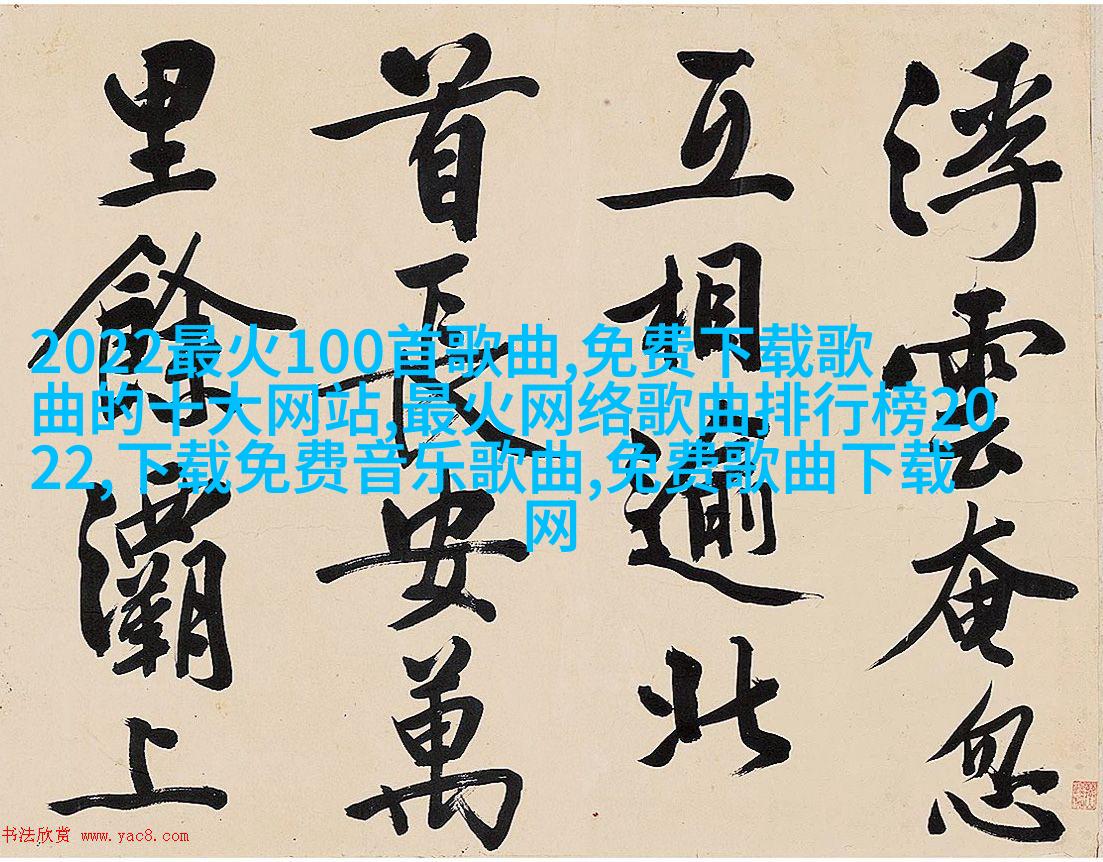 浮雲奄忽
互相逾北
首長安萬
里餘灞上
2022最火100首歌曲,免费下载歌
曲的十大网站,最火网络歌曲排行榜20
22,下载免费音乐歌曲,免费歌曲下载
网
书法欣赏 www.yac8.com